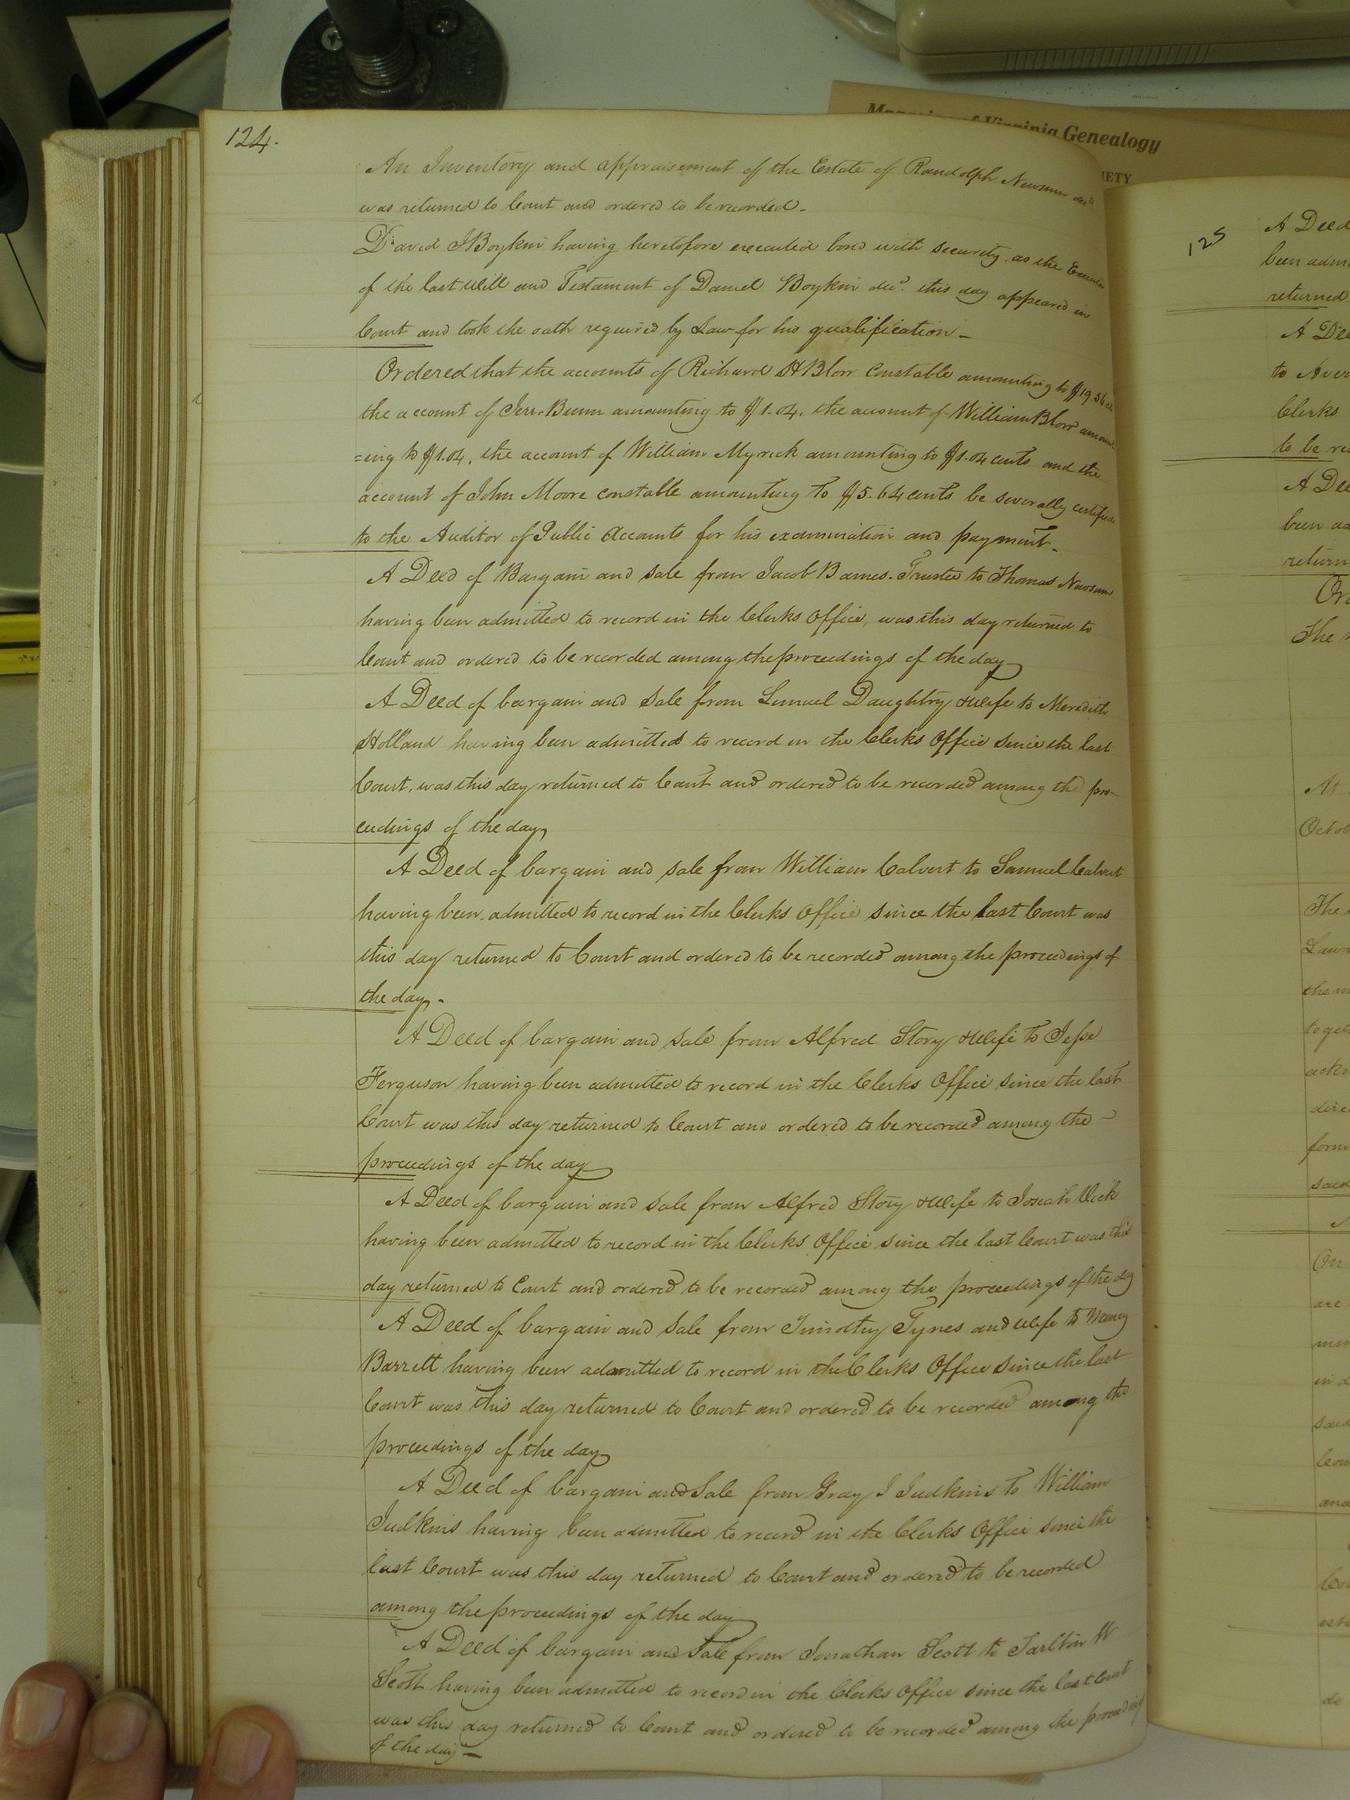 Magazine of Virginia Genealogy
124.
An Inventory and appraisement of the Estate of Randolph Newsum decd
was returned to Court and ordered to be recorded.
David J Boykin having heretofore executed bond with security as the Executor
of the last will and Testament of Daniel Boykin decd. this day appeared in
Court and took the oath required by Law for his qualification
Ordered that the accounts of Richard H Blow Constable amounting to $19.56
the account of Jerr. Bunn amounting to $1.04. the account of William Blow amount
=ing to $1.04, the account of William Myrick amounting to $1.04 cents and the
account of John Moore constable amounting to $5.64 cents be severally certified
to the Auditor of Public Accounts for his examination and payment.
A Deed of Bargain and sale from Jacob Barnes. Trustee to Thomas Newsum
having been admitted to record in the Clerks Office, was this day returned to
Court and ordered to be recorded among the proceedings of the day
A Deed of bargain and sale from Lemuel Daughtry & wife to Meredith
Holland having been admitted to record in the Clerks Office since the last
Court, was this day returned to Court and ordered to be recorded among the pro-
ceedings of the day
A Deed of bargain and sale from William Calvert to Samuel Calvert
having been admitted to record in the Clerks Office since the last Court was
this day returned to Court and ordered to be recorded among the proceedings of
the day.
A Deed of bargain and sale from Alfred Story & wife to Jesse
Ferguson having been admitted to record in the Clerks Office since the last
Court was this day returned to Court and ordered to be recorded among the
proceedings of the day
A Deed of bargain and sale from Alfred Story & wife to Josiah Vick
having been admitted to record in the Clerks Office since the last Court was this
day returned to Court and ordered to be recorded among the proceedings of the day
A Deed of bargain and sale from Timothy Tynes and wife to Nancy
Barrett having been admitted to record in the Clerks Office since the last
Court was this day returned to Court and ordered to be recorded among the
proceedings of the day
A Deed of bargain and Sale from Gray J Judkins to William
Judkins having been admitted to record in the Clerks Office since the
last Court was this day returned to Court and ordered to be recorded
among the proceedings of the day
A Deed of bargain and Sale from Jonathan Scott to Tarlton W
Scott having been admitted to record in the Clerks Office since the last Court
was this day returned to Court and ordered to be recorded among the proceedings
of the day
125
A Deed
been adm
returned
A Dee
to
Clerks
to be re
A Dee
been ad
return
Or
The
At
Octob
The
Law
the m
toget
ackn
dire
form
said
On
are
men
in
said
Cou
and
Co